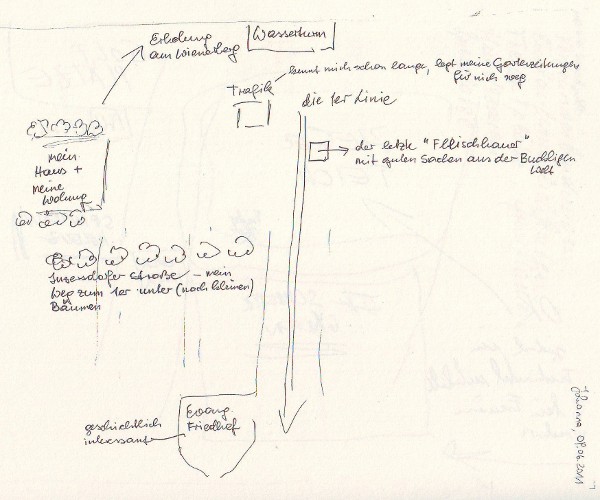 Erholung
am Wienerberg
Wasserturm
Trafik
kennt mich schon lange, legt meine Gartenzeitungen
für mich weg
die 1er Linie
der letzte "Fleischhauer"
mit guten Sachen aus der Buckligen
Welt
mein
Haus +
meine
Wohung
Inzersdorfer Straße – mein
Weg zum 1er unter (noch kleinen)
Bäumen
geschichtlich
interessant
Evang.
Friedhof
09.06.2011